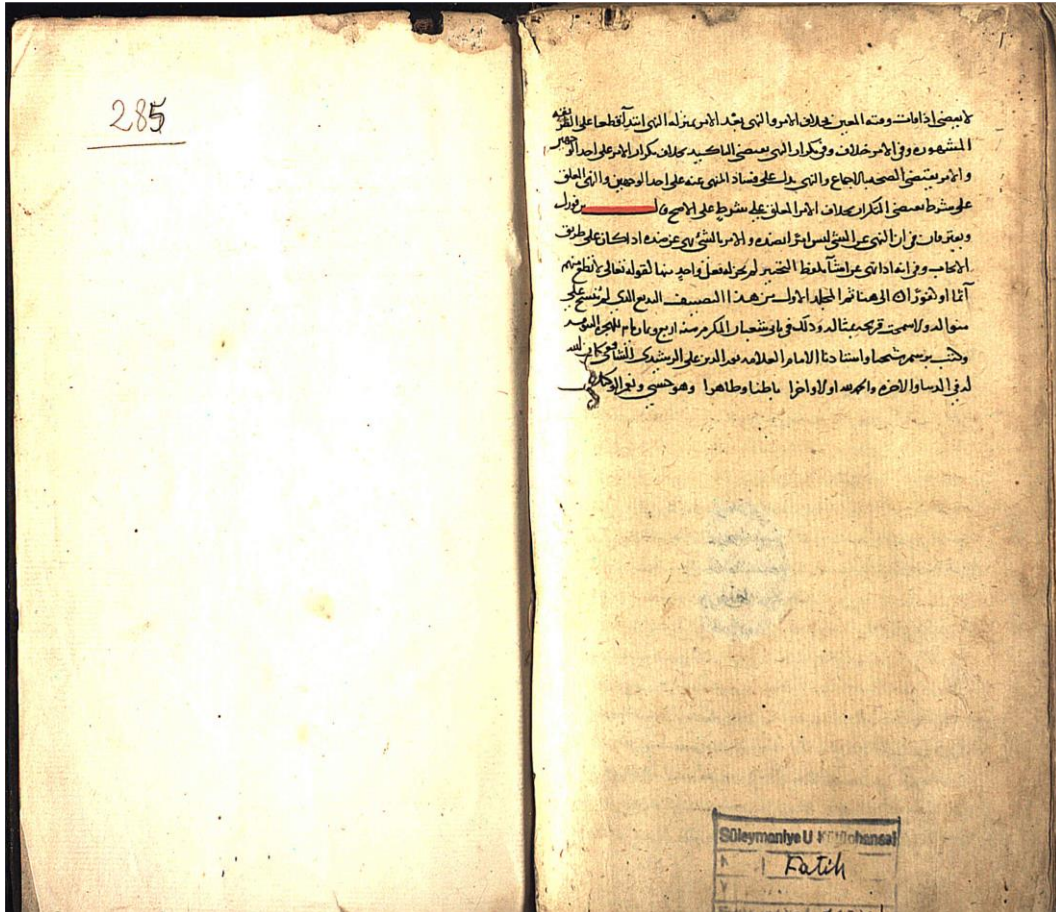 285
لا يقتضى اذا فات وقته المعين بخلاف الامر والنهى بعد الامر بمنزلة النهى ابتداً قطعا على الطريقة
المشهوره وفى الامر خلاف وفى تكرار النهى يقتضى التاكيد بخلاف تكرار الامر على احد الوجهين
والامر يقتضى الصحه بالاجماع والنهى يدل على فساد المنهى عنه على احد الوجهين والنهى المعلق
على شرط يقتضى التكرار بخلاف الامر المعلق على شرط على الاصح بن فورك
ويفترقان فى ان النهى عن الشئ ليس امرا بضده والامر بالشئ نهى عن ضده اذا كان على طريق
الايجاب وفى انه اذا نهى عن اشيآ بلفظ التخيير لم يجز له فعل واحد منها لقوله تعالى لا تطع منهم
آثما او كفورًا الى هنا تم المجلد الاول من هذا التصنيف البديع الذى لم ينسج على
منواله ولا سمحت قريحه بمثاله وذلك فى شعبان المكرم سنه اربع
وكتب برسم شيخنا واستادنا الامام العلامه نور الدين على الرشيدى الشافعى كان الله
له فى الدنيا والاخره والحمد لله اولا واخرا باطنا وظاهرا وهو حسبى ونعم الوكيل
Süleymaniye U Kütüphanesi
Fatih